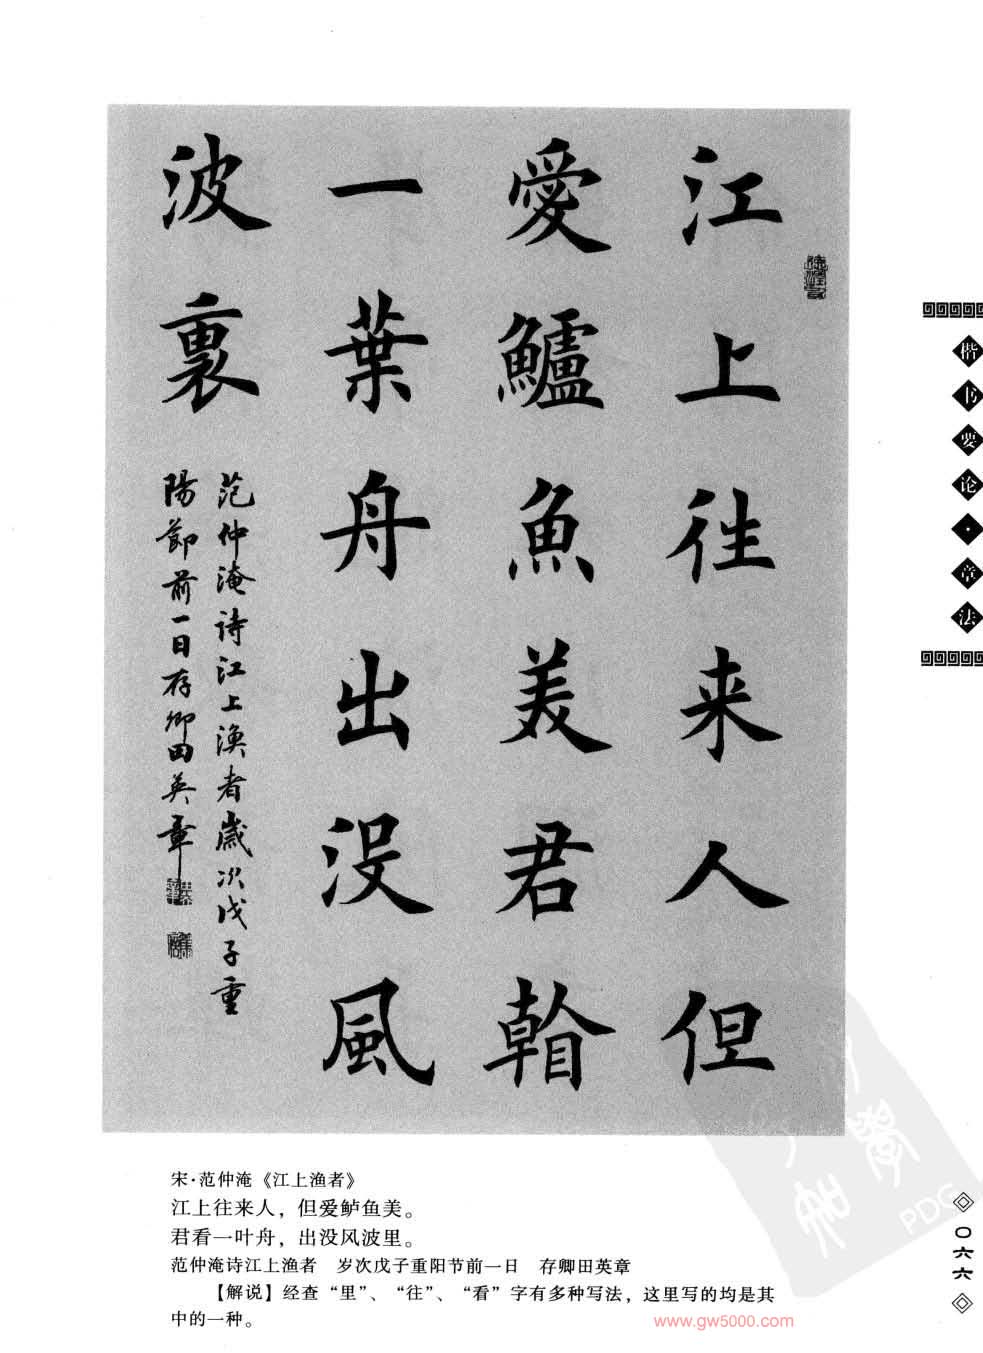 江上往来人但
愛鱸魚美君翰
一葉舟出没風
波裏
范仲淹诗江上渔者歲次戊子重
陽節前一日存卿田英章
楷书要论·章法
宋·范仲淹《江上渔者》
江上往来人，但爱鲈鱼美。
君看一叶舟，出没风波里。
范仲淹诗江上渔者　岁次戊子重阳节前一日　存卿田英章
【解说】经查“里”、“往”、“看”字有多种写法，这里写的均是其
中的一种。
〇六六
www.gw5000.com
PDG